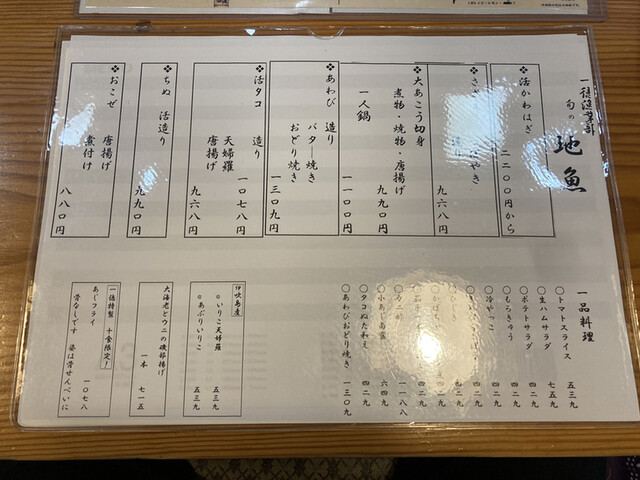 一徳漁業部
旬の 地魚
❖活かわはぎ
二二〇〇円から
九六八円
❖大あこう切身
煮物・焼物・唐揚げ
九九〇円
一人鍋
一一〇〇円
❖あわび 造り
バター焼き
おどり焼き
一三〇九円
❖活タコ 造り
一〇七八円
天婦羅
唐揚げ
九六八円
❖ちぬ 活造り
九九〇円
❖おこぜ 唐揚げ
煮付け
八八〇円
一品料理
〇トマトスライス 五三九
〇生ハムサラダ 七五九
〇ポテトサラダ 四二九
〇もろきゅう 四二九
〇冷やっこ 四二九
四二九
四二九
一一八八
〇小あじ南蛮 六四九
〇タコぬた和え 四二九
〇あわびおどり焼き 一三〇九
伊吹島産
◎いりこ天婦羅 五三九
◎あぶりいりこ 五三九
大海老とウニの磯部揚げ
一本 七一五
一徳特製 十食限定！
あじフライ 一〇七八
骨なしです 姿は骨せんべいに